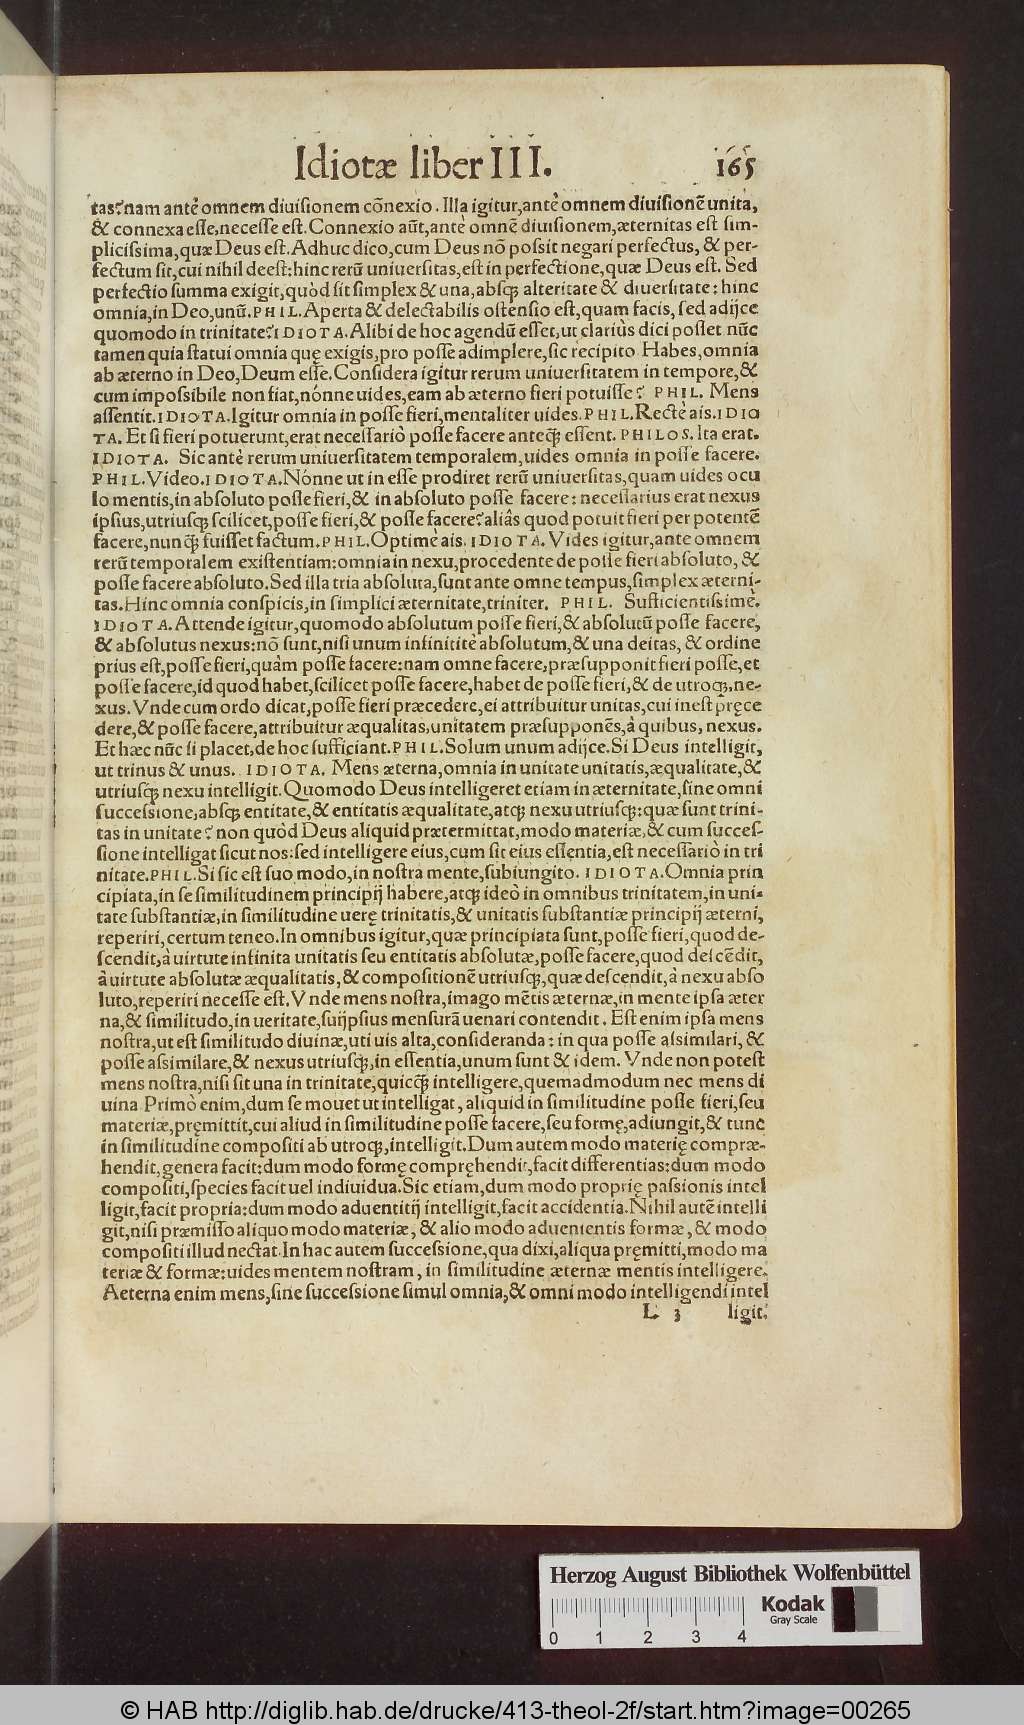 Idiotæ liber III. 165
tas? nam antè omnem diuisionem cõnexio. Illa igitur, antè omnem diuisionē unita,
& connexa esse, necesse est. Connexio aūt, antè omnē diuisionem, æternitas est sim-
plicissima, quæ Deus est. Adhuc dico, cum Deus nõ possit negari perfectus, & per-
fectum sit, cui nihil deest: hinc rerū uniuersitas, est in perfectione, quæ Deus est. Sed
perfectio summa exigit, quòd sit simplex & una, absq; alteritate & diuersitate: hinc
omnia, in Deo, unū. PHIL. Aperta & delectabilis ostensio est, quam facis, sed adijce
quomodo in trinitate? IDIOTA. Alibi de hoc agendū esset, ut clariùs dici posset nūc
tamen quia statui omnia quę exigis, pro posse adimplere, sic recipito Habes, omnia
ab æterno in Deo, Deum esse. Considera igitur rerum uniuersitatem in tempore, &
cum impossibile non fiat, nónne uides, eam ab æterno fieri potuisse? PHIL. Mens
assentit. IDIOTA. Igitur omnia in posse fieri, mentaliter uides. PHIL. Rectè ais. IDIO
TA. Et si fieri potuerunt, erat necessariò posse facere anteq̃ essent. PHILOS. Ita erat.
IDIOTA. Sic antè rerum uniuersitatem temporalem, uides omnia in posse facere.
PHIL. Video. IDIOTA. Nónne ut in esse prodiret rerū uniuersitas, quam uides ocu
lo mentis, in absoluto posse fieri, & in absoluto posse facere: necessarius erat nexus
ipsius, utriusq; scilicet, posse fieri, & posse facere? aliâs quod potuit fieri per potentē
facere, nunq̃ fuisset factum. PHIL. Optimè ais. IDIOTA. Vides igitur, ante omnem
rerū temporalem existentiam: omnia in nexu, procedente de posse fieri absoluto, &
posse facere absoluto. Sed illa tria absoluta, sunt ante omne tempus, simplex æterni-
tas. Hinc omnia conspicis, in simplici æternitate, triniter. PHIL. Sufficientissimè.
IDIOTA. Attende igitur, quomodo absolutum posse fieri, & absolutū posse facere,
& absolutus nexus: nõ sunt, nisi unum infinititè absolutum, & una deitas, & ordine
prius est, posse fieri, quàm posse facere: nam omne facere, præsupponit fieri posse, et
posse facere, id quod habet, scilicet posse facere, habet de posse fieri, & de utroq;, ne-
xus. Vnde cum ordo dicat, posse fieri præcedere, ei attribuitur unitas, cui inest pręce
dere, & posse facere, attribuitur æqualitas, unitatem præsupponēs, à quibus, nexus.
Et hæc nūc si placet, de hoc sufficiant. PHIL. Solum unum adijce. Si Deus intelligit,
ut trinus & unus. IDIOTA. Mens æterna, omnia in unitate unitatis, æqualitate, &
utriusq; nexu intelligit. Quomodo Deus intelligeret etiam in æternitate, sine omni
successione, absq; entitate, & entitatis æqualitate, atq; nexu utriusq;: quæ sunt trini-
tas in unitate? non quòd Deus aliquid prætermittat, modo materiæ, & cum succes-
sione intelligat sicut nos: sed intelligere eius, cum sit eius essentia, est necessariò in tri
nitate. PHIL. Si sic est suo modo, in nostra mente, subiungito. IDIOTA. Omnia prin
cipiata, in se similitudinem principij habere, atq; ideò in omnibus trinitatem, in uni-
tate substantiæ, in similitudine uerę trinitatis, & unitatis substantiæ principij æterni,
reperiri, certum teneo. In omnibus igitur, quæ principiata sunt, posse fieri, quod de-
scendit, à uirtute infinita unitatis seu entitatis absolutæ, posse facere, quod descēdit,
à uirtute absolutæ æqualitatis, & compositionē utriusq;, quæ descendit, à nexu abso
luto, reperiri necesse est. Vnde mens nostra, imago mētis æternæ, in mente ipsa æter
na, & similitudo, in ueritate, suijpsius mensurā uenari contendit. Est enim ipsa mens
nostra, ut est similitudo diuinæ, uti uis alta, consideranda: in qua posse assimilari, &
posse assimilare, & nexus utriusq;, in essentia, unum sunt & idem. Vnde non potest
mens nostra, nisi sit una in trinitate, quicq̃ intelligere, quemadmodum nec mens di
uina Primò enim, dum se mouet ut intelligat, aliquid in similitudine posse fieri, seu
materiæ, pręmittit, cui aliud in similitudine posse facere, seu formę, adiungit, & tunc
in similitudine compositi ab utroq;, intelligit. Dum autem modo materię compræ-
hendit, genera facit: dum modo formę compręhendit, facit differentias: dum modo
compositi, species facit uel indiuidua. Sic etiam, dum modo proprię passionis intel
ligit, facit propria: dum modo aduentitij intelligit, facit accidentia. Nihil autē intelli
git, nisi præmisso aliquo modo materiæ, & alio modo aduenientis formæ, & modo
compositi illud nectat. In hac autem successione, qua dixi, aliqua pręmitti, modo ma
teriæ & formæ: uides mentem nostram, in similitudine æternæ mentis intelligere.
Aeterna enim mens, sine successione simul omnia, & omni modo intelligendi intel
L 3 ligit.
Herzog August Bibliothek Wolfenbüttel
Kodak
Gray Scale
0 1 2 3 4
© HAB http://diglib.hab.de/drucke/413-theol-2f/start.htm?image=00265